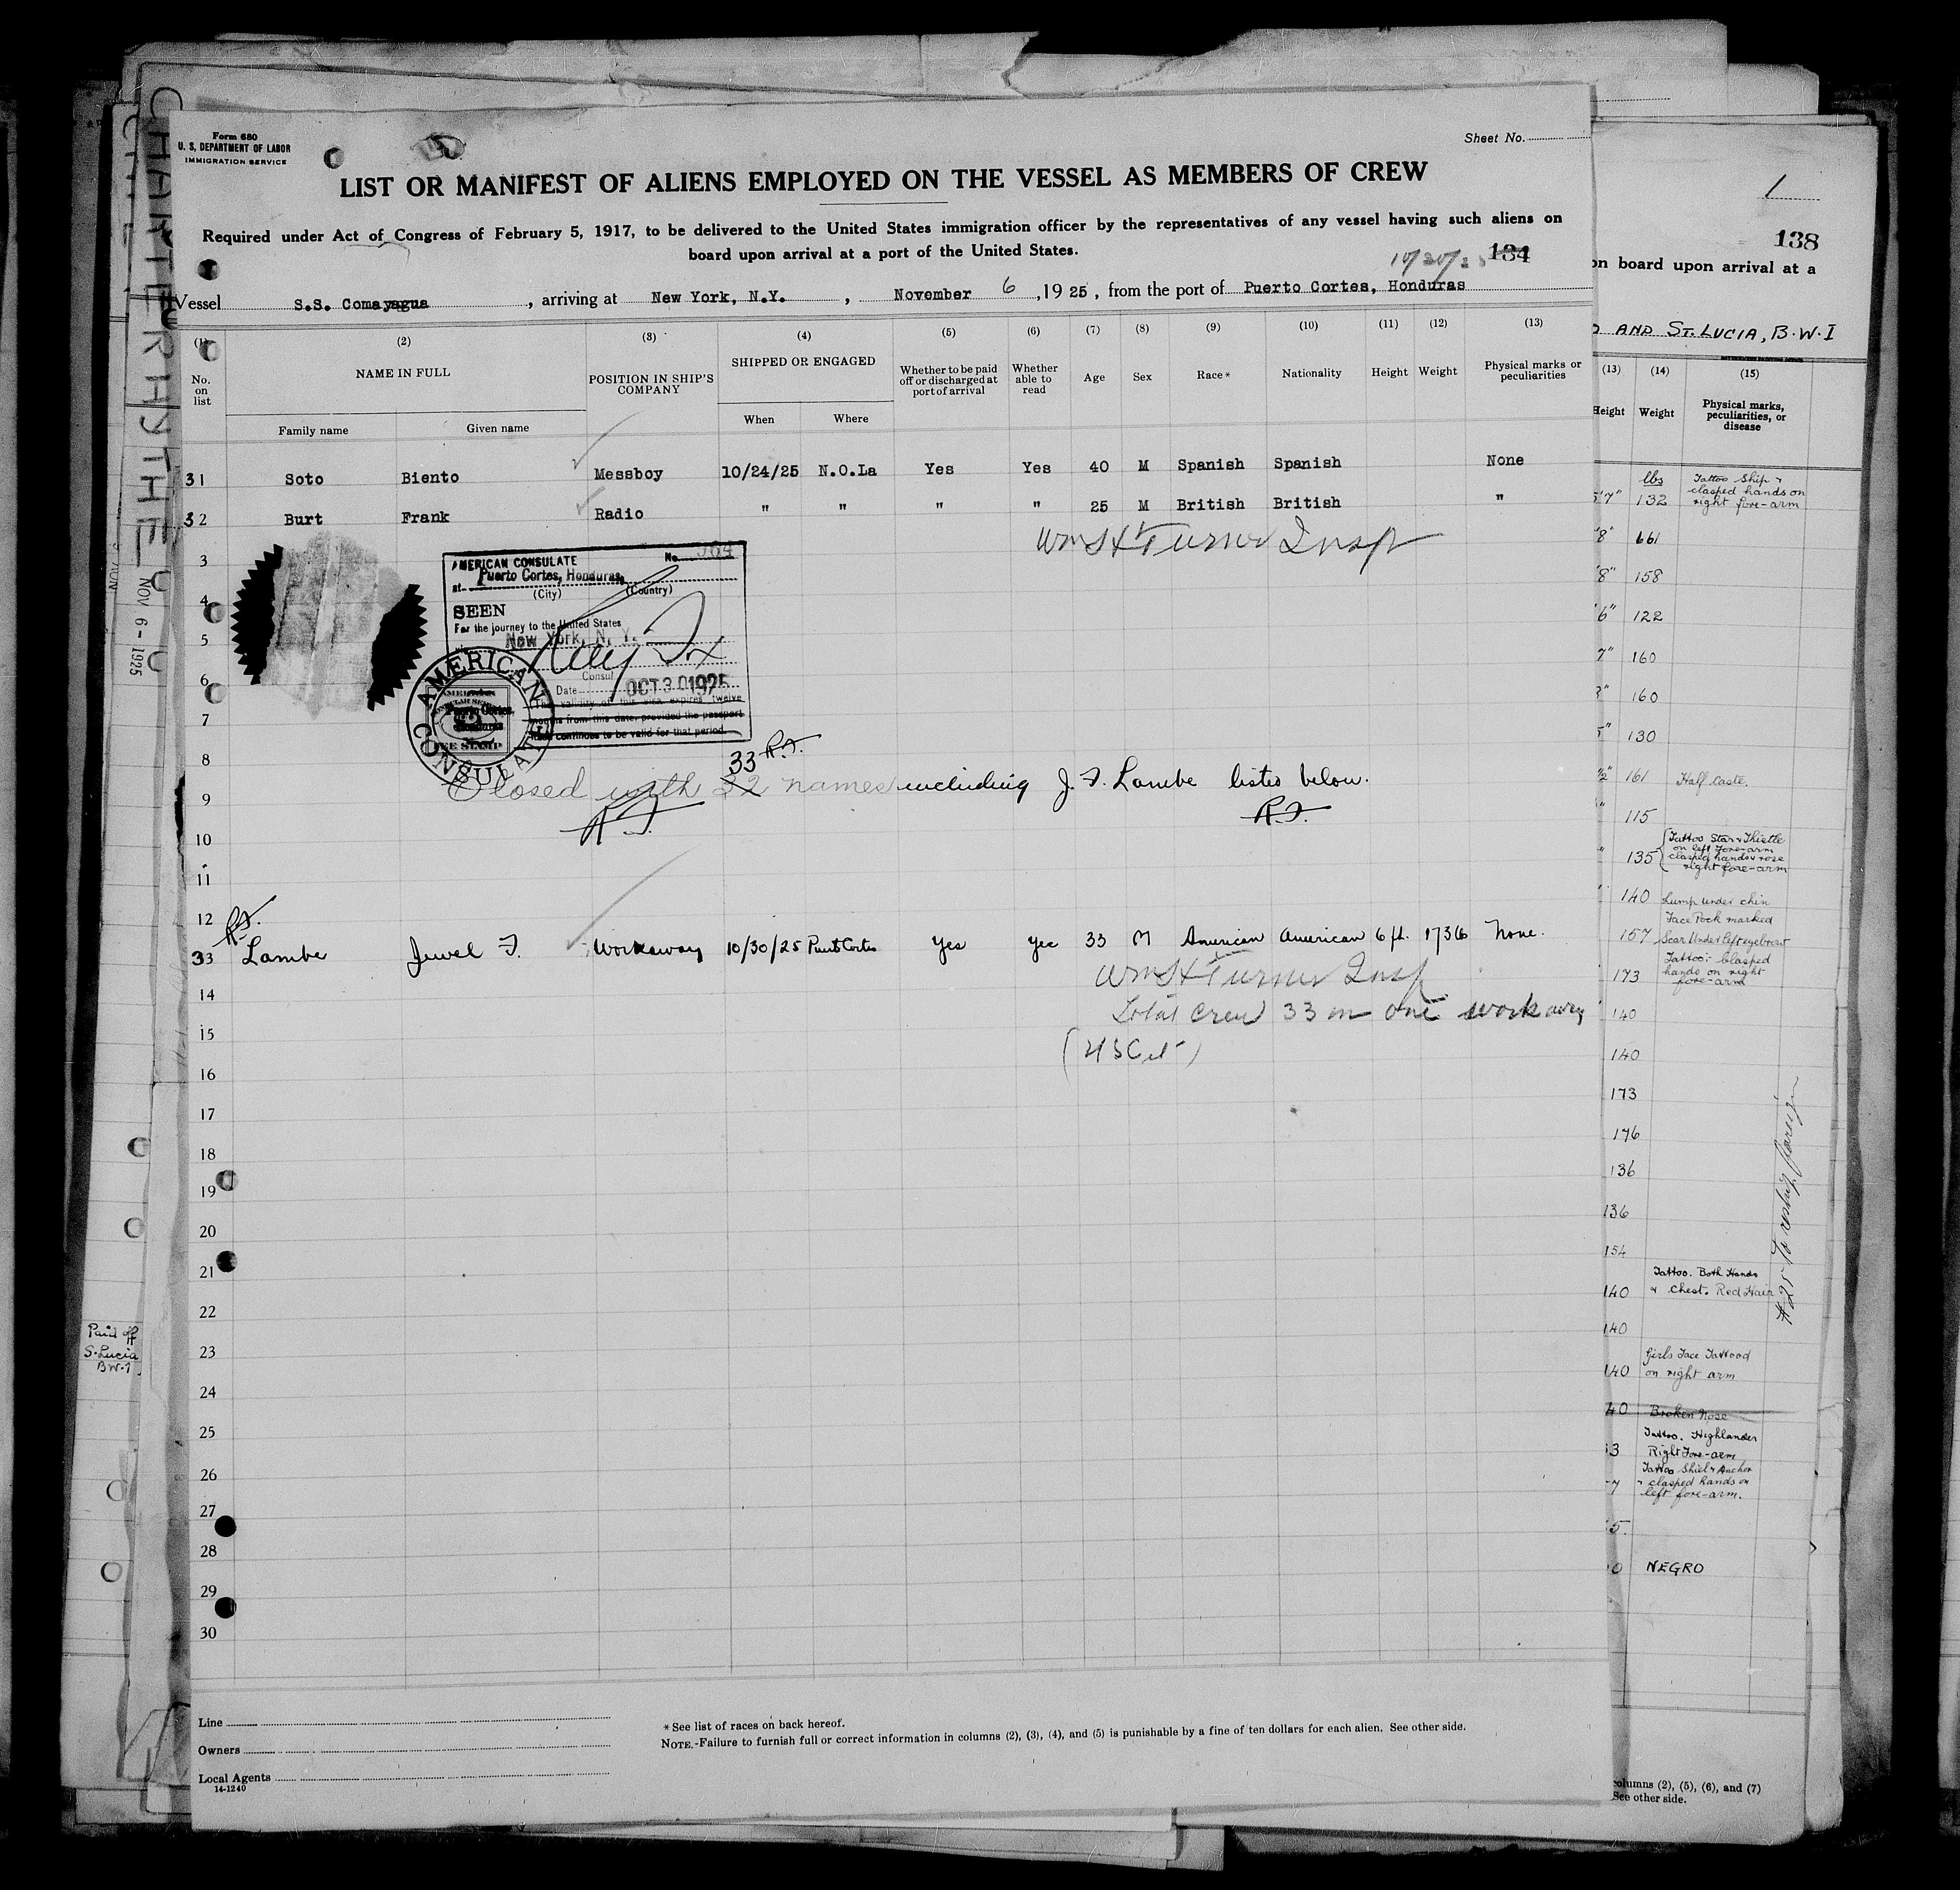 Form 680
U. S. DEPARTMENT OF LABOR
IMMIGRATION SERVICE
Sheet No.
LIST OR MANIFEST OF ALIENS EMPLOYED ON THE VESSEL AS MEMBERS OF CREW
Required under Act of Congress of February 5, 1917, to be delivered to the United States immigration officer by the representatives of any vessel having such aliens on
board upon arrival at a port of the United States.
134
Vessel S.S. Comayagua, arriving at New York, N.Y., November 6, 1925, from the port of Puerto Cortes, Honduras
(1) (2) (3) (4) (5) (6) (7) (8) (9) (10) (11) (12) (13)
No. on list
NAME IN FULL
Family name
Given name
POSITION IN SHIP'S COMPANY
SHIPPED OR ENGAGED
When
Where
Whether to be paid off or discharged at port of arrival
Whether able to read
Age
Sex
Race*
Nationality
Height
Weight
Physical marks or peculiarities
31 Soto Biento Messboy 10/24/25 N.O.La Yes Yes 40 M Spanish Spanish None
32 Burt Frank Radio " " " " 25 M British British "
Wm H Turner Insp
3
4
5
6
7
8
9
10
11
12
AMERICAN CONSULATE No. 584
at Puerto Cortes, Honduras,
(City) (Country)
SEEN
For the journey to the United States
New York, N. Y.
Consul
Date OCT 30 1925
The validity of this visa expires twelve
months from this date, provided the passport
continues to be valid for that period.
AMERICAN CONSULATE
Puerto Cortes,
Honduras
FEE STAMP
33 R.F.
Closed with 32 names including J. F. Lambe listed below.
R.F. R.F.
R.F.
33 Lambe Jewel F. Workaway 10/30/25 Puerto Cortes Yes yes 33 M American American 6 ft. 173lb None.
Wm H Turner Insp
Total crew 33 in one workaway
(U S Cit)
14
15
16
17
18
19
20
21
22
23
24
25
26
27
28
29
30
Line
Owners
Local Agents
14-1240
* See list of races on back hereof.
NOTE.-Failure to furnish full or correct information in columns (2), (3), (4), and (5) is punishable by a fine of ten dollars for each alien. See other side.
CHARTERHYTHE
NOV 6 - 1925
Paid off
S. Lucia
B.W.I
1
138
on board upon arrival at a
AND ST. LUCIA, B.W.I
(13) (14) (15)
Height
Weight
Physical marks, peculiarities, or disease
lbs
5'7" 132 Tattoo Ship & clasped hands on right fore-arm
8" 661
8" 158
6" 122
7" 160
160
130
161 Half caste.
115
135 Tattoo Star & Thistle on left fore-arm clasped hands & rose right fore-arm
140 Lump under chin
Face Pock marked
157 Scar Under left eyebrow
173 Tattoo: Clasped hands on right fore-arm
140
140
173
176
136
136
154
140 Tattoo. Both Hands & Chest. Red Hair
140
140 Girls Face Tattood on right arm
40 Broken Nose
3 Tattoo. Highlander Right Fore-arm
7 Tattoo Shield & Anchor & clasped hands on left fore-arm.
5.
0 NEGRO
columns (2), (5), (6), and (7)
See other side.